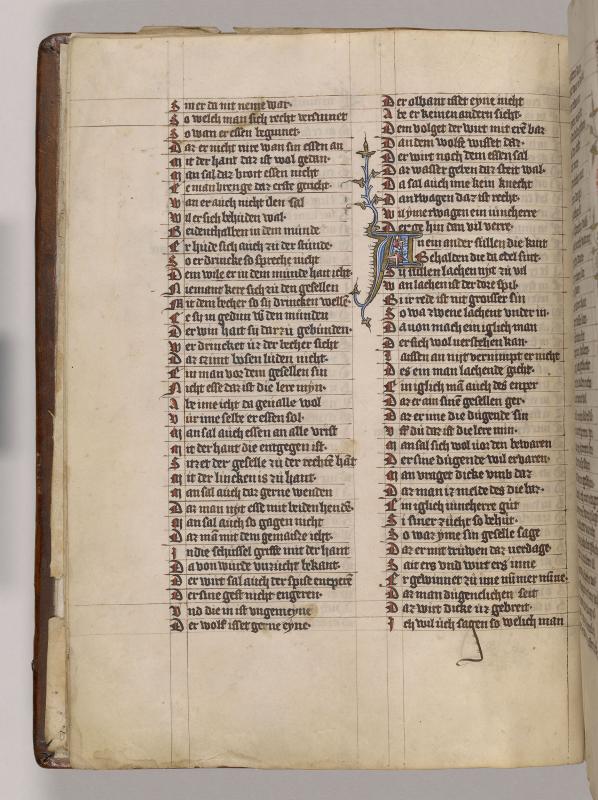 S in er da nit neme war·
S o welch man sich recht versinnet
S o wan er essen beginnet·
D az er nicht wire wan sin essen an
M it der hant daz ist wol getan·
M an sal daz broit essen nicht
E e man brenge daz erste gericht·
W an er auch nicht den sal
W il er sich behuden wal·
B eidenthalben in dem munde
E r hude sich auch zu der stunde·
S o er drincke so spreche nicht
D em wile er in dem munde hait icht·
N iemant kere sich zu den gesellen
M it dem becher so sy drincken wellē·
E e sy in gedun vō den munden
D er win hait sy dar zu gebunden·
W er drincket uz der becher sicht
D az czimt bosen luden nicht·
E in man vor dem gesellen sin
N icht esse daz ist die lere myn·
A be ime icht da geualle wol
V ur ime selbe er essen sol·
M an sal auch essen an alle vrist
M it der hant die entgegen ist·
S itzet der geselle zu der rechtē hāt
M it der lincken is zu hant·
M an sal auch daz gerne wenden
D az man nyt esse mit beiden hendē·
M an sal auch so gagen nicht
D az mā mit dem gemaisze icht·
I n die schussel griffe mit der hant
D a von wurde vnzucht bekant·
D er wirt sal auch der spise
D er sine gest nicht engeren·
V nd die in ist vngemeyne
D er wolf isset gerne eyne·
D er olbant isset eyne nicht
A be er keinen andern sicht·
D em volget der wirt mit erē baz
D an dem wolfe wisset daz·
D er wirt noch dem essen sal
D az wasser geben daz steit wal·
D a sal auch ime kein knecht
D an twagen daz ist recht·
W il yme twagen ein iuncherre
D er ge hin dan vil verre·
A n ein ander sullen die kint
Behalden die da edel sint·
S ij sullen lachen nyt zu vil
W an lachen ist der dore spil·
B i ir rede ist nit grosser sin
S o wa zwene lachent vnder in·
D a von mach ein iglich man
D er sich wol verstehen kan·
L aissen an nyt vernimpt er nicht
D es ein man lachende gicht·
E in iglich mā auch des enper
D az er ain sinē gesellen ger·
D az er ime die dugende sin
V ff du daz ist die lere min·
M an sal sich wol vor den bewaren
D er sine dugende wil ervaren·
M an vraget dicke vmb daz
D az man iz melde des die baz·
E in iglich iuncherre gut
S i siner zucht so behut·
S o waz yme sin geselle sage
D az er mit truwen daz verdage·
S ait ers vnd wirt ers inne
E r gewinnet zu ime nūmer mīne·
D az man dugenclichen seit
D az wirt dicke uz gebreit·
I ch wil uch sagen so welich man